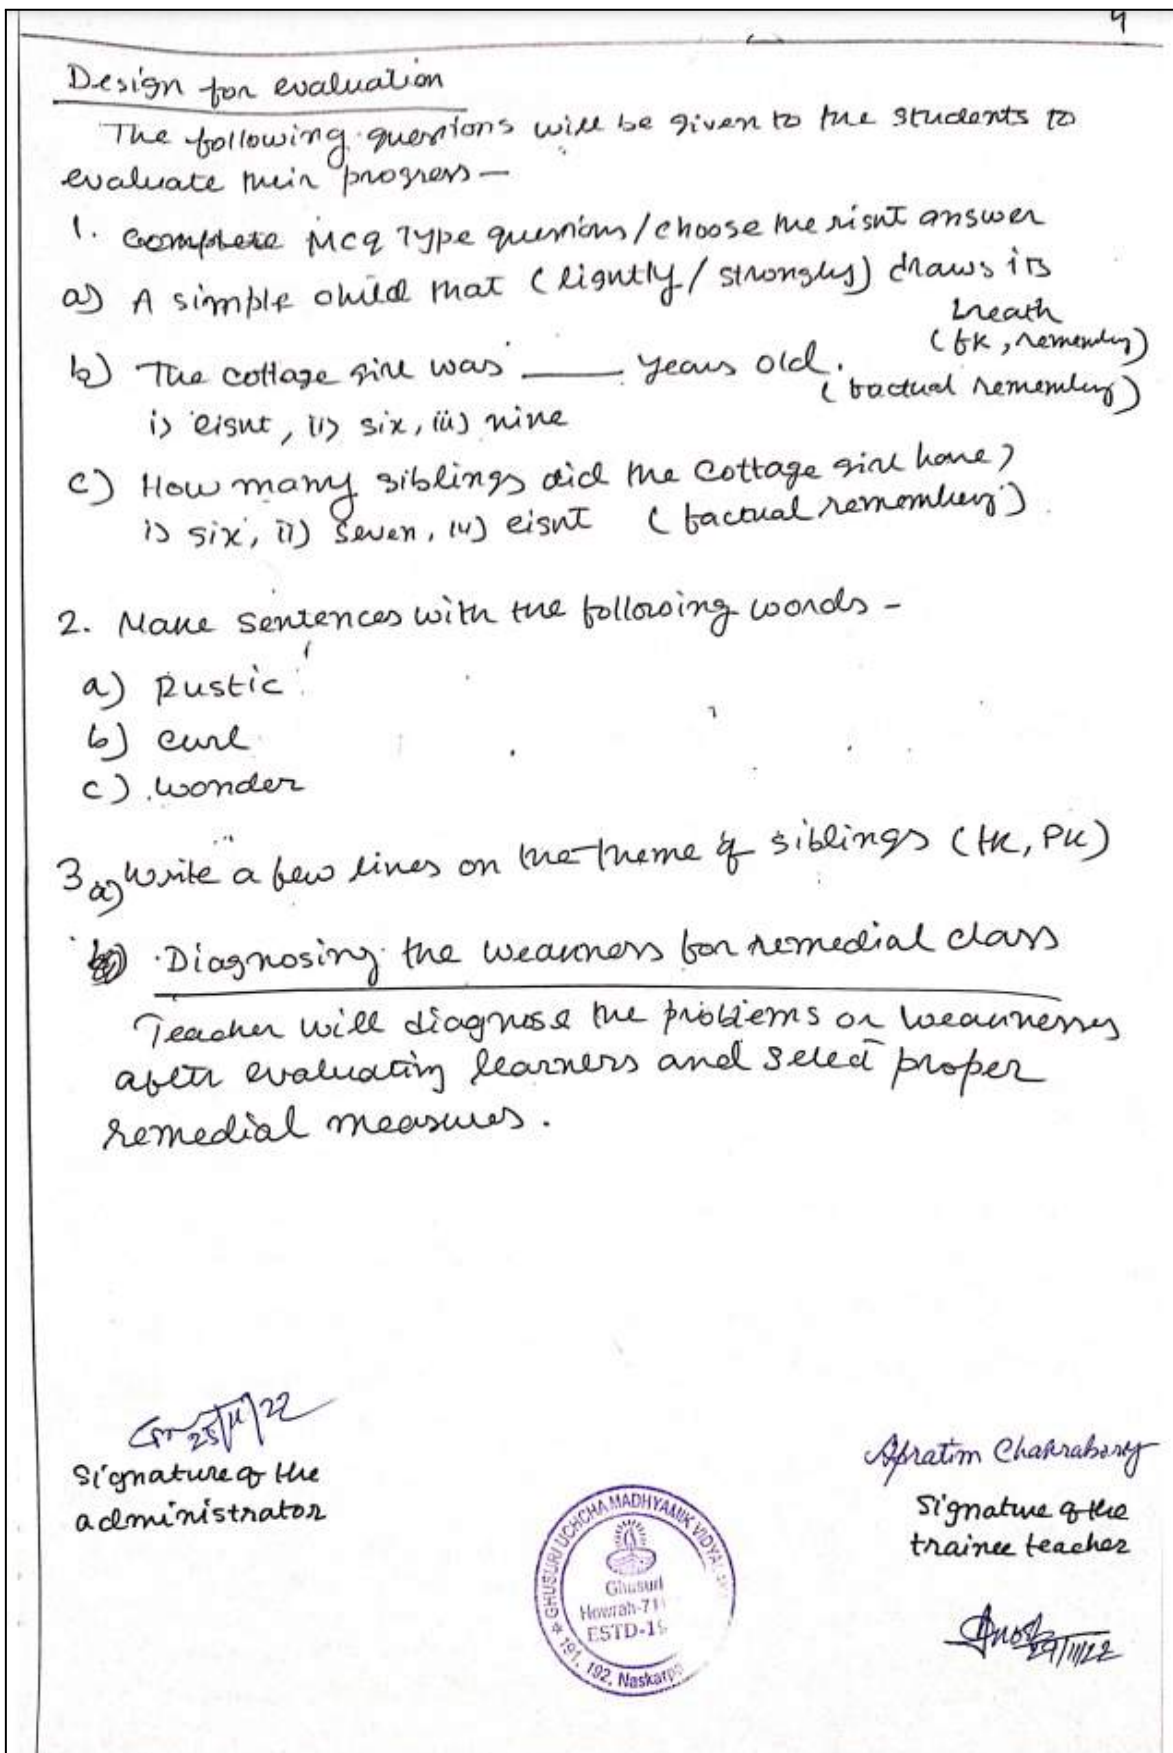 4
Design for evaluation
The following questions will be given to the students to
evaluate their progress —
1. Complete MCQ Type questions / choose the right answer
a) A simple child that (lightly / strongly) draws its
breath
(fk, remembering)
b) The cottage girl was ____ years old.
(factual remembering)
i) eight, ii) six, iii) nine
c) How many siblings did the cottage girl have?
i) six, ii) seven, iv) eight (factual remembering).
2. Make sentences with the following words –
a) Rustic
b) curl
c) wonder
3 a) Write a few lines on the theme of siblings (tk, PK)
Diagnosing the weakness for remedial class
Teacher will diagnose the problems or weaknesses
after evaluating learners and select proper
remedial measures.
25/11/22
Signature of the
administrator
Apratim Chakraborty
Signature of the
trainee teacher
29/11/22
GHUSURI UCHCHA MADHYAMIK
Ghusuri
Howrah-711
ESTD-19
191, 192, Naskarp